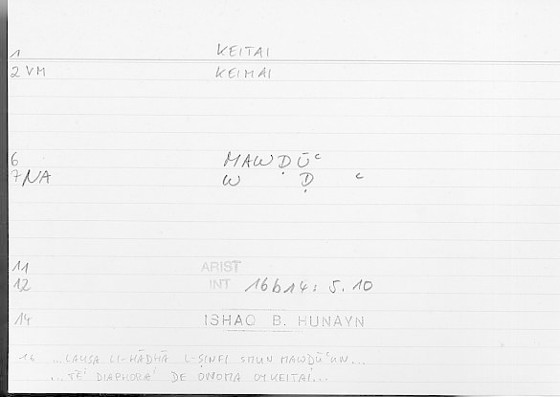 1 KEITAI
2 VM KEIMAI
6 MAWḌŪᶜ
7 NA W Ḍ ᶜ
11 ARIST
12 INT 16b14: 5.10
14 ISHAQ B. HUNAYN
16 ...LAYSA LI-HĀDHĀ L-ṢINFI SMUN MAWḌŪᶜUN...
...TĒⁱ DIAPHORĀⁱ DE ONOMA OU KEITAI...